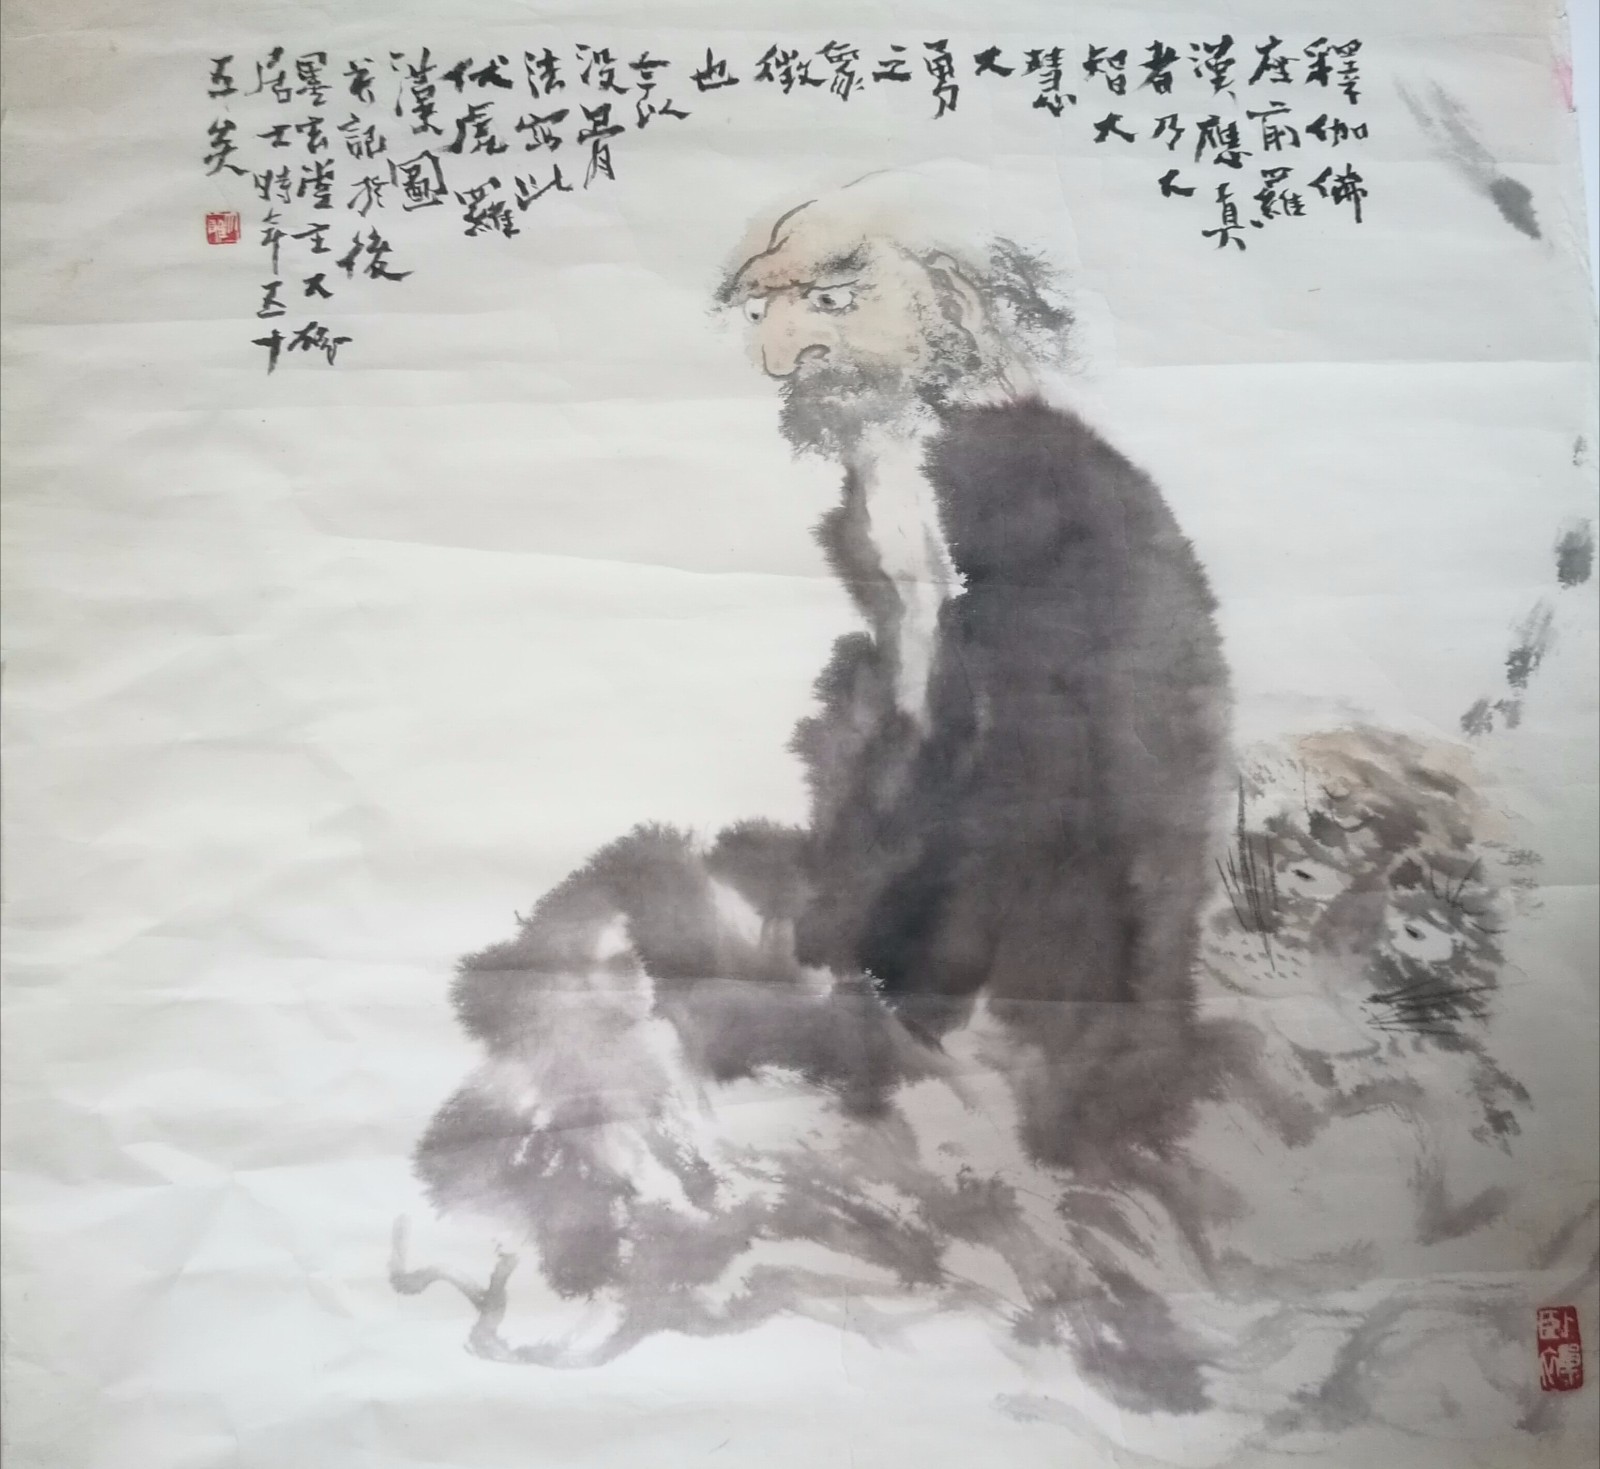 釋伽佛
座前羅
漢應真
者乃大
智大
慧
大
勇
之
象
徵
也
今以
没骨
法写此
伏虎羅
漢圖
記於後
墨堂主大
居士時年五十
五矣